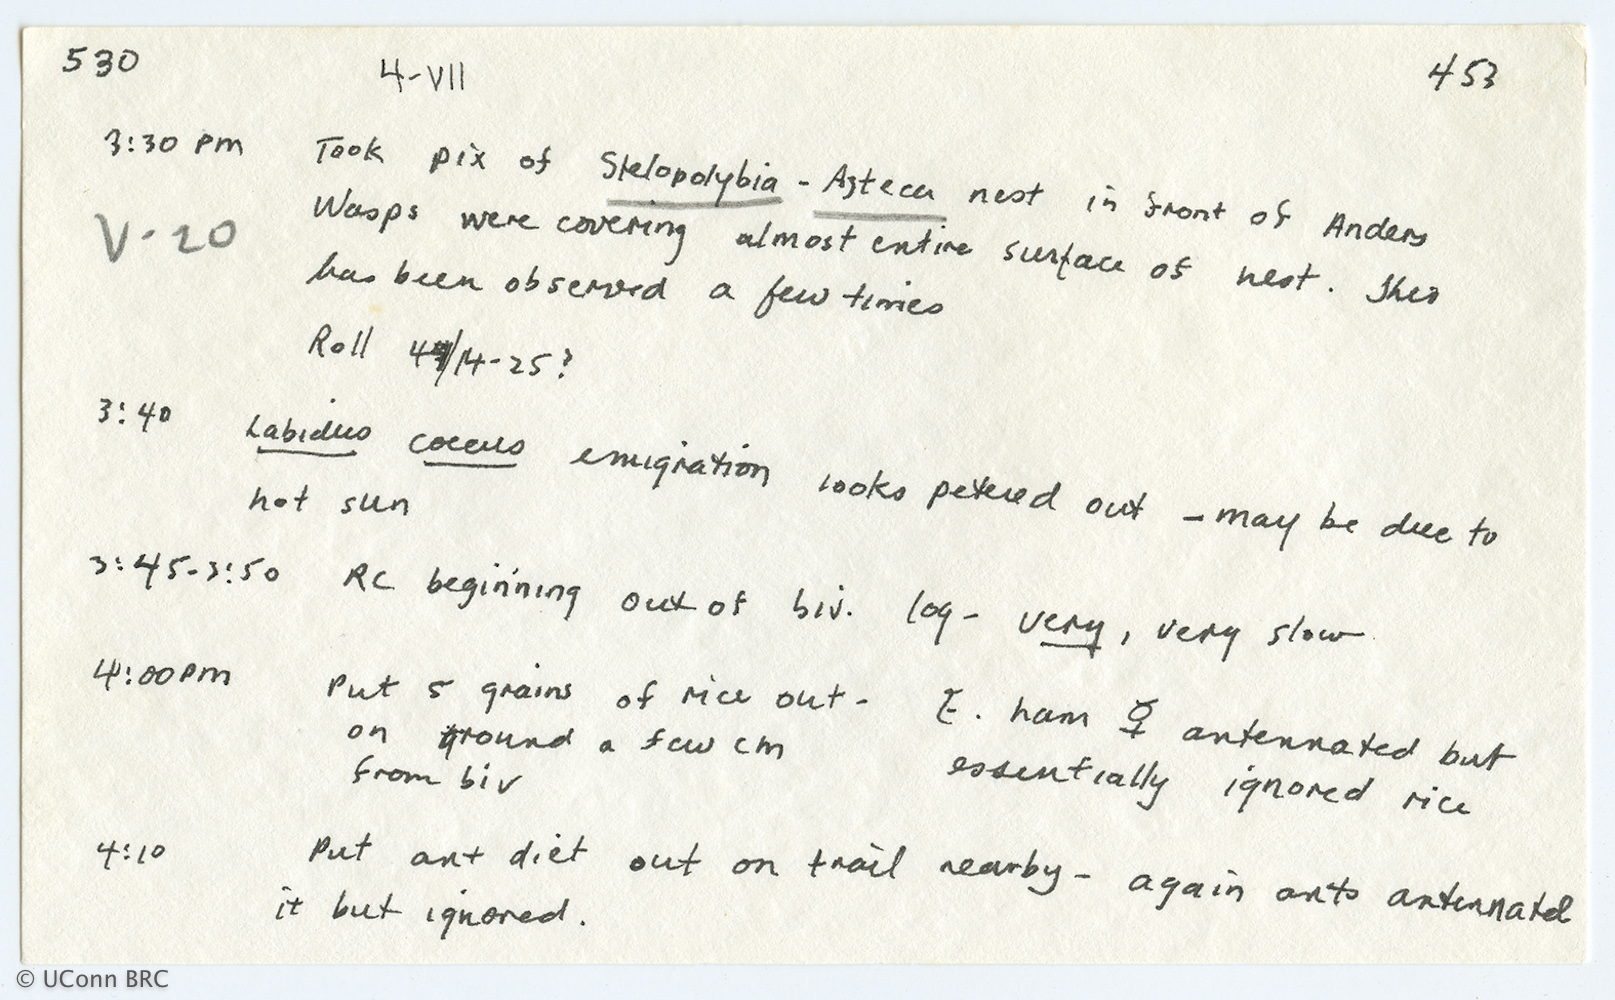 530 4-VII 453
3:30 pm Took pix of Stelopolybia - Azteca nest in front of Anders
V-20 Wasps were covering almost entire surface of nest. This
has been observed a few times
Roll /14-25?
3:40 Labidus coecus emigration looks petered out - may be due to
hot sun
3:45-3:50 RC beginning out of biv. log - very, very slow
4:00pm Put 5 grains of rice out - E. ham ☿ antennated but
on ground a few cm essentially ignored rice
from biv
4:10 Put ant diet out on trail nearby - again ants antennated
it but ignored.
© UConn BRC